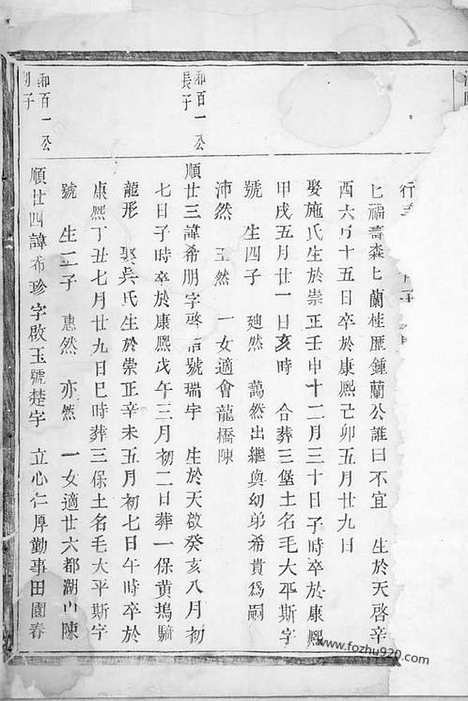 行
七福壽森七蘭桂匪鍾蘭公誰曰不宜 生於天啓辛
酉六月十五日卒於康熙己卯五月廿九日
娶施氏生於崇正壬申十二月三十日子時卒於康熙
甲戌五月廿一日亥時 合葬三堡土名毛大平斯字
號 生四子 廸然 藹然出繼與幼弟希貴爲嗣
沛然 玉然 一女適會龍橋陳
和百一公長子
順廿三諱希朋字啓 號瑞宇 生於天啟癸亥八月初
七日子時卒於康熙戊午三月初二日葬一保黄塢騎
龍形 娶吳氏生於崇正辛未五月初七日午時卒於
康熙丁丑七月廿九日巳時葬三保土名毛大平斯字
號 生二子 惠然 亦然 一女適廿六都湖山陳
和百一公 子
順廿四諱希珍字啟玉號楚宇 立心仁厚勤事田園春
www.fozhu920.com